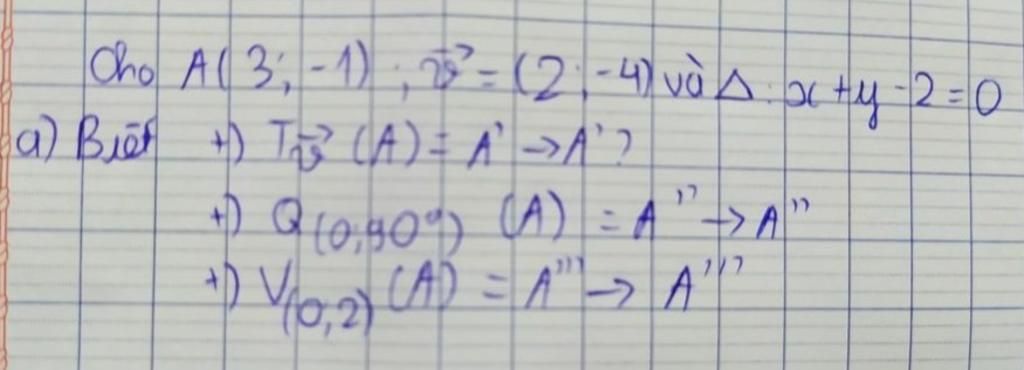 Cho A(3; -1) ; v⃗ = (2; -4) và Δ: x+y-2=0
a) Biết +) Tv⃗ (A) = A' → A' ?
+) Q(0;90°) (A) = A'' → A''
+) V(0,2) (A) = A''' → A'''